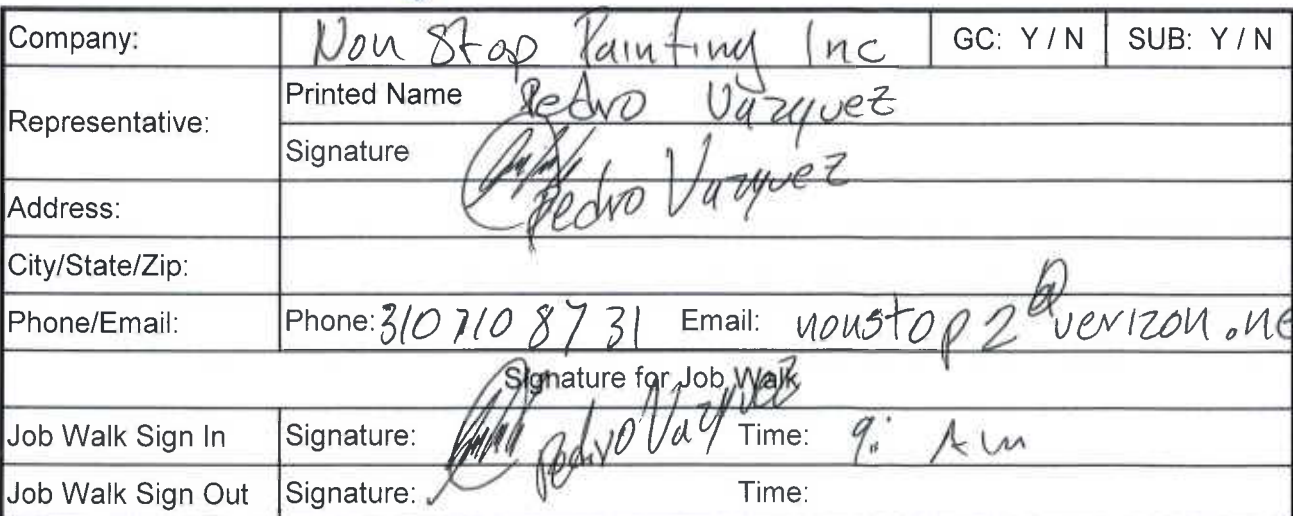 Company: Non Stop Painting Inc GC: Y / N SUB: Y / N
Representative: Printed Name Pedro Vazquez
Signature Pedro Vazquez
Address:
City/State/Zip:
Phone/Email: Phone: 310 710 8731 Email: nonstop2@verizon.ne
Signature for Job Walk
Job Walk Sign In Signature: Pedro Vazquez Time: 9: Am
Job Walk Sign Out Signature: Time: